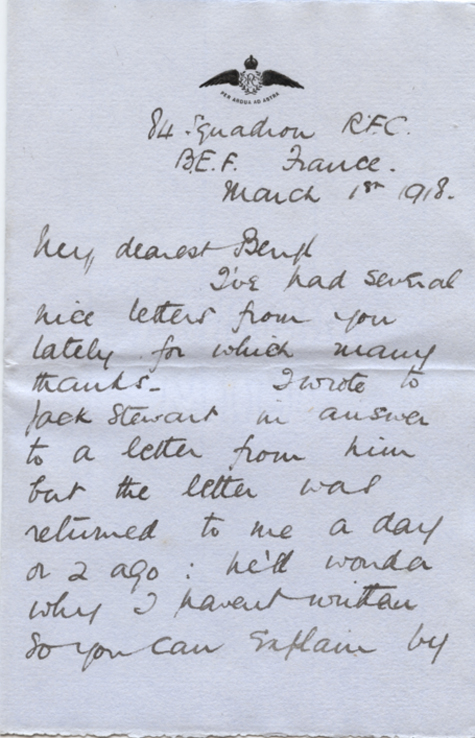 PER ARDUA AD ASTRA
84 Squadron R.F.C.
B.E.F. France.
March 1st 1918.
My dearest
I've had several
nice letters from you
lately for which many
thanks - I wrote to
Jack Stewart in answer
to a letter from him
but the letter was
returned to me a day
or 2 ago : he'll wonder
why I havent written
so you can explain by